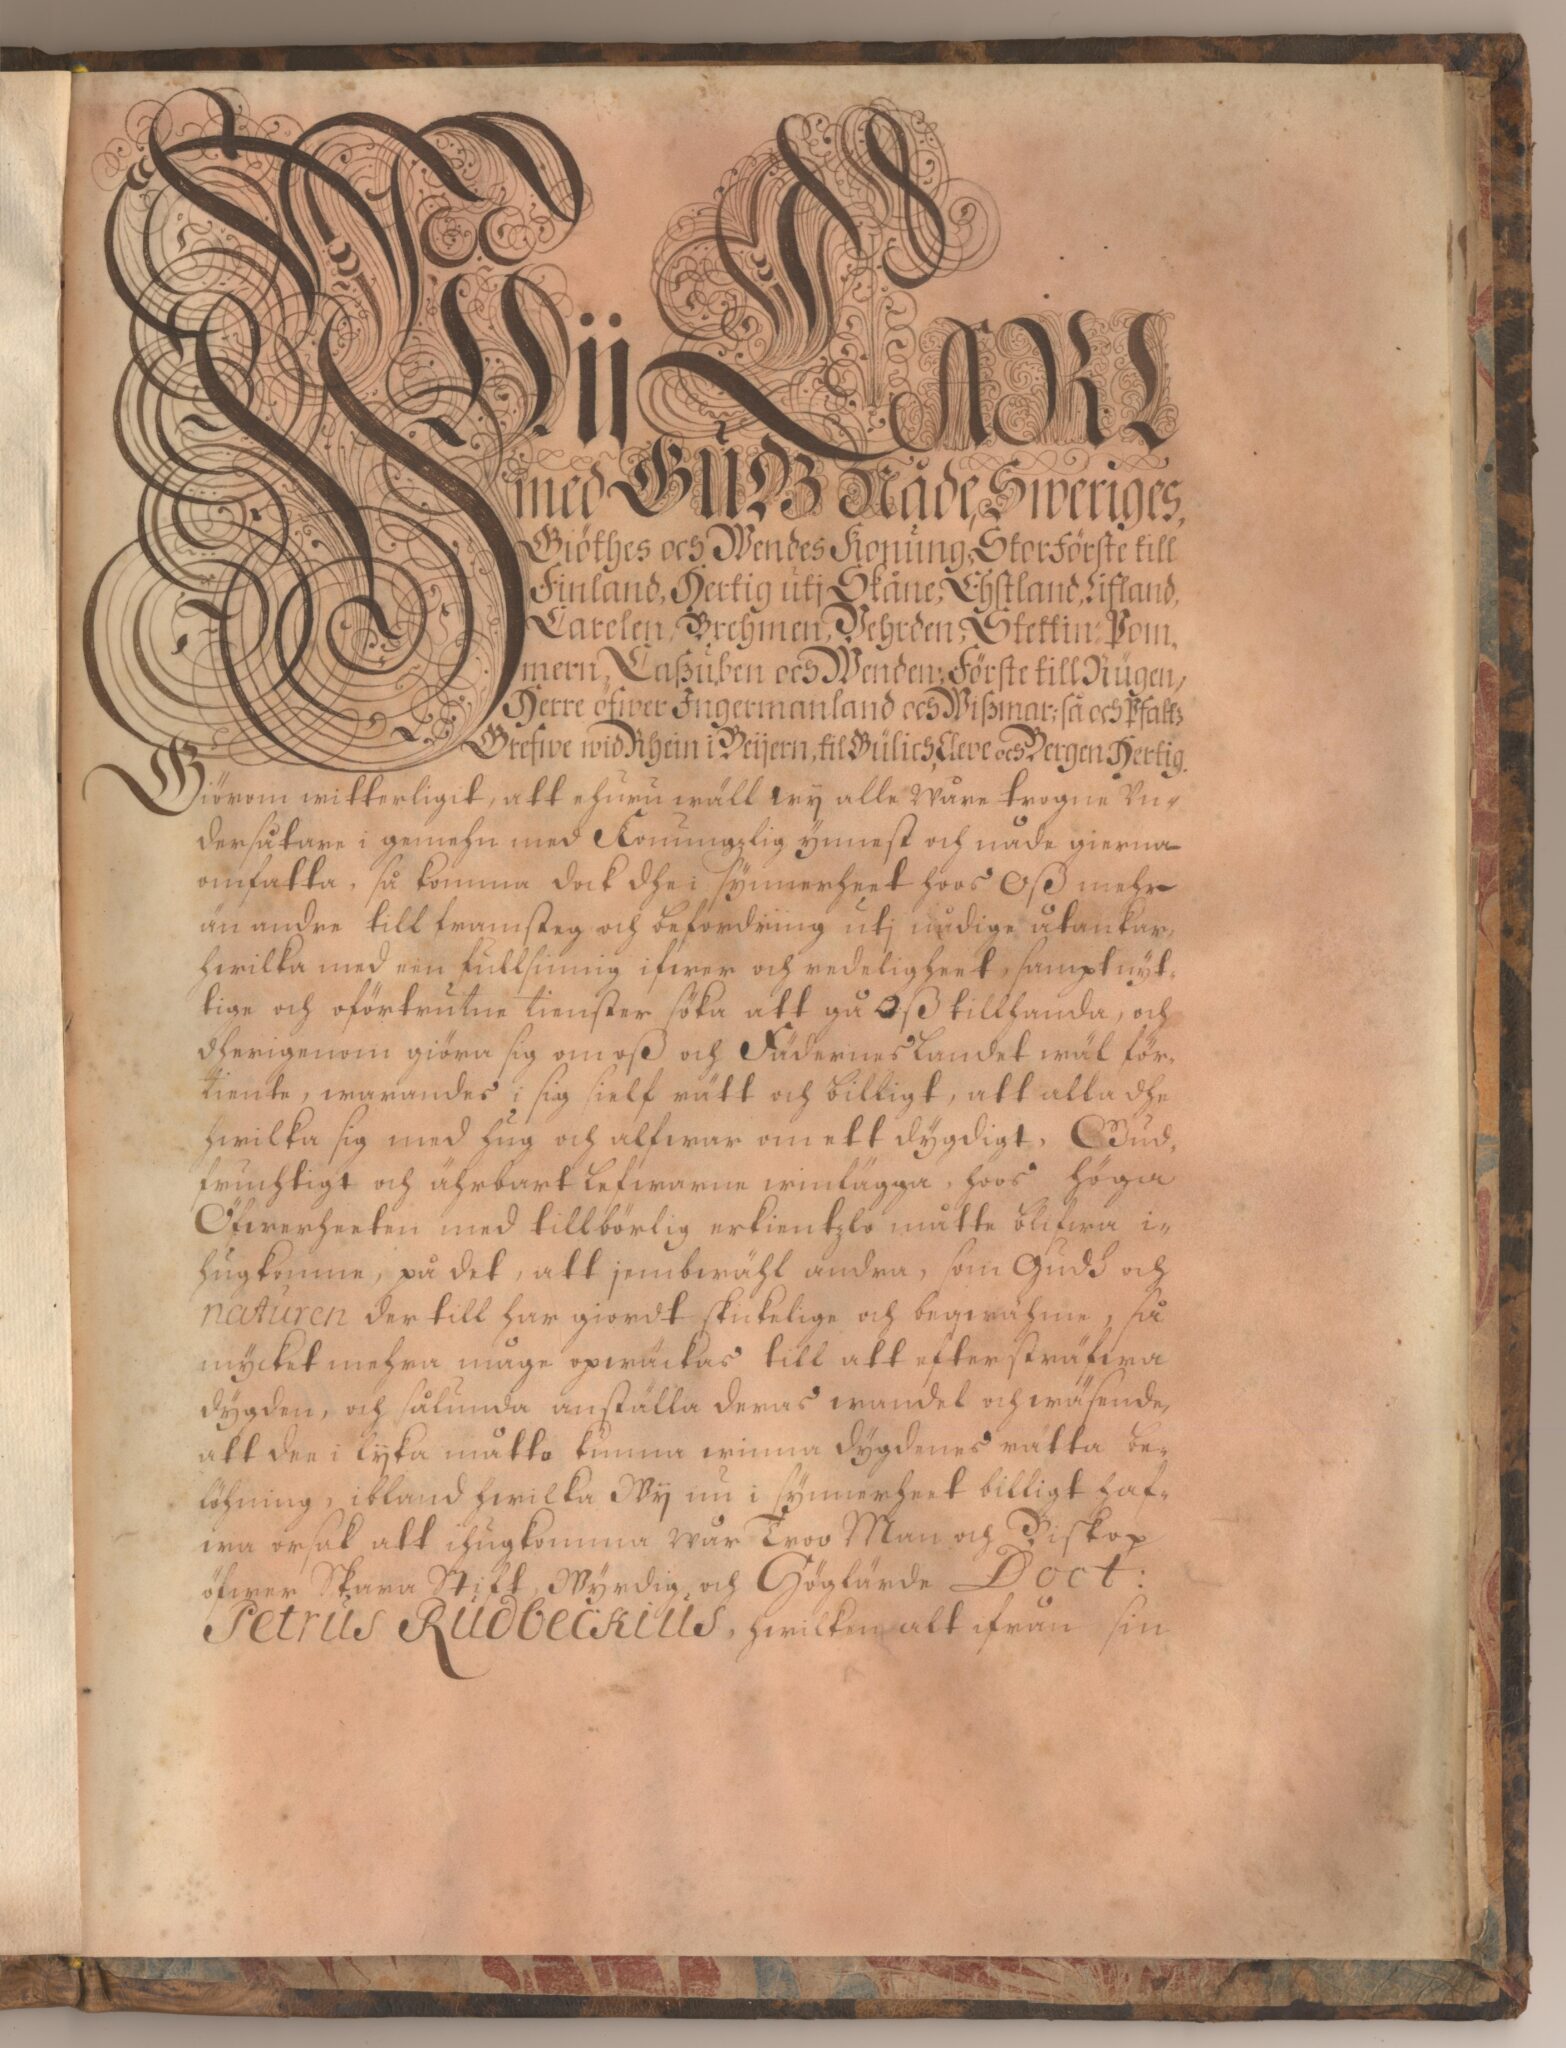 Wii CARL
med GUDZ Nåde, Sweriges,
Giöthes och Wendes Konung, Storförste till
Finland, Hertig utj Skåne, Ehstland, Lifland,
Carelen, Brehmen, Vehrden, Stettin, Pom,
mern, Caßuben och Wenden, Förste till Rügen,
Herre öfwer Ingermanland och Wißmar; så och Pfaltz
Grefwe wid Rhein i Beijern, til Gülich, Cleve och Bergen Hertig.
Giörom witterligit, att ehuru wäll wy alle Wåre trogne Un-
dersåtare i gemehn med Konungzlig ynnest och nåde gierna
omfatta, så komma dock dhe i synnerheet hoos Oß mehr
än andre till framsteg och befordring utj nådige åtankar,
hwilka med een fullsinnig ifwer och redeligheet, sampt nyt-
tige och oförtrutne tienster söka att gå Oß tillhanda, och
dherigenom giöra sig om oß och Fädernes Landet wäl för-
tiente, warandes i sig sielf rätt och billigt, att alla dhe
hwilka sig med hug och alfwar om ett dygdigt, Gud-
fruchtigt och ährbart lefwarne winlägga, hoos Höga
Öfwerheeten med tillbörlig erkientzlo måtte blifwa i-
hugkomne, på det, att jembwähl andra, som Gudh och
naturen der till har giordt skickelige och beqwähme, så
mycket mehra måge opwäckas till att eftersträfwa
dygden, och sålunda anställa deras wandel och wäsende,
att dee i lyka måtto kunna winna dygdenes rätta be-
löhning, ibland hwilka Wy nu i synnerheet billigt haf-
wa orsak att ihugkomma Wår Troo Man och Biskop
öfwer Skara Stift, Wyrdig och Höglärde Doct:
Petrus Rudbeckius, hwilken alt ifrån sin